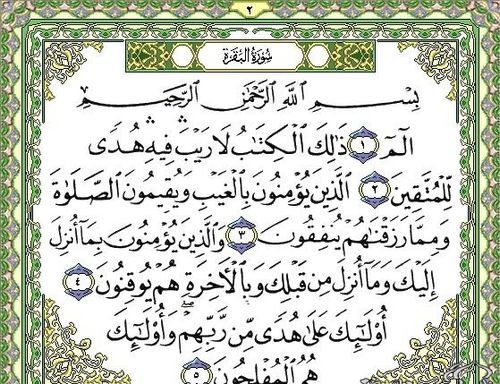 ٢
سُورَةُ البَقَرَة
بِسْمِ ٱللَّهِ ٱلرَّحْمَٰنِ ٱلرَّحِيمِ
الٓمٓ ١ ذَٰلِكَ ٱلْكِتَٰبُ لَا رَيْبَ ۛ فِيهِ ۛ هُدًى
لِّلْمُتَّقِينَ ٢ ٱلَّذِينَ يُؤْمِنُونَ بِٱلْغَيْبِ وَيُقِيمُونَ ٱلصَّلَوٰةَ
وَمِمَّا رَزَقْنَٰهُمْ يُنفِقُونَ ٣ وَٱلَّذِينَ يُؤْمِنُونَ بِمَآ أُنزِلَ
إِلَيْكَ وَمَآ أُنزِلَ مِن قَبْلِكَ وَبِٱلْأَخِرَةِ هُمْ يُوقِنُونَ ٤
أُو۟لَٰٓئِكَ عَلَىٰ هُدًى مِّن رَّبِّهِمْ ۖ وَأُو۟لَٰٓئِكَ
هُمُ ٱلْمُفْلِحُونَ ٥